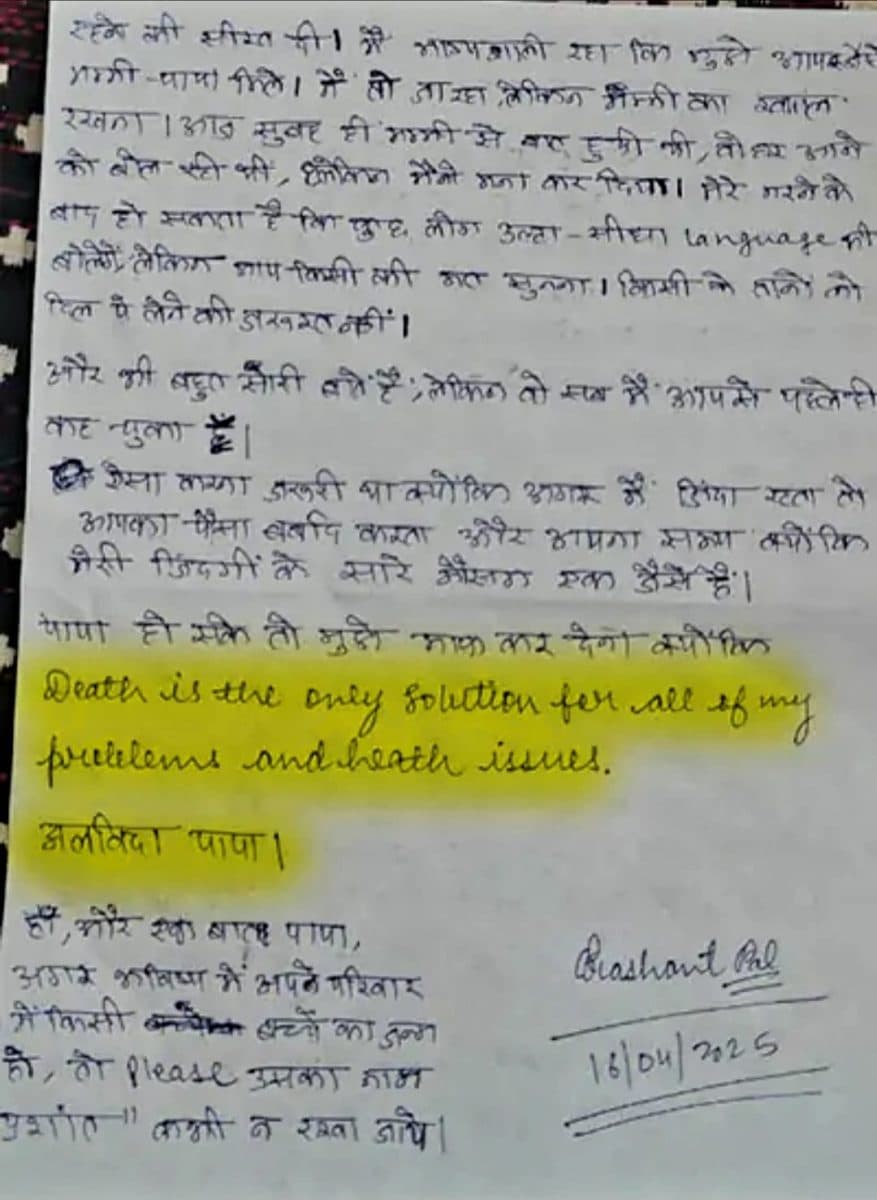 रहने की सीख दी। मैं भाग्यशाली रहा कि मुझे आपके जैसे
मम्मी-पापा मिले। मैं तो जा रहा, लेकिन मम्मी का ख्याल
रखना। आज सुबह ही मम्मी से बात हुयी थी, वो घर आने
को बोल रही थीं, लेकिन मैंने मना कर दिया। मेरे मरने के
बाद हो सकता है कि कुछ लोग उल्टा-सीधा language भी
बोलेंगे, लेकिन आप किसी की मत सुनना। किसी के तानों को
दिल पे लेने की जरूरत नहीं।
और भी बहुत सारी बातें हैं, लेकिन वो सब मैं आपसे पहले ही
कह चुका हूँ।
ऐसा करना जरूरी था क्योंकि अगर मैं जिंदा रहता तो
आपका पैसा बर्बाद करता और अपना समय क्योंकि
मेरी जिंदगी के सारे मौसम एक जैसे हैं।
पापा हो सके तो मुझे माफ कर देना क्योंकि
Death is the only solution for all of my
problems and heath issues.
अलविदा पापा।
हाँ, और एक बात पापा,
अगर भविष्य में अपने परिवार
में किसी बच्चों का जन्म
हो, तो please उसका नाम
प्रशांत" कभी न रखा जाये।
Prashant Pal
16/04/2025